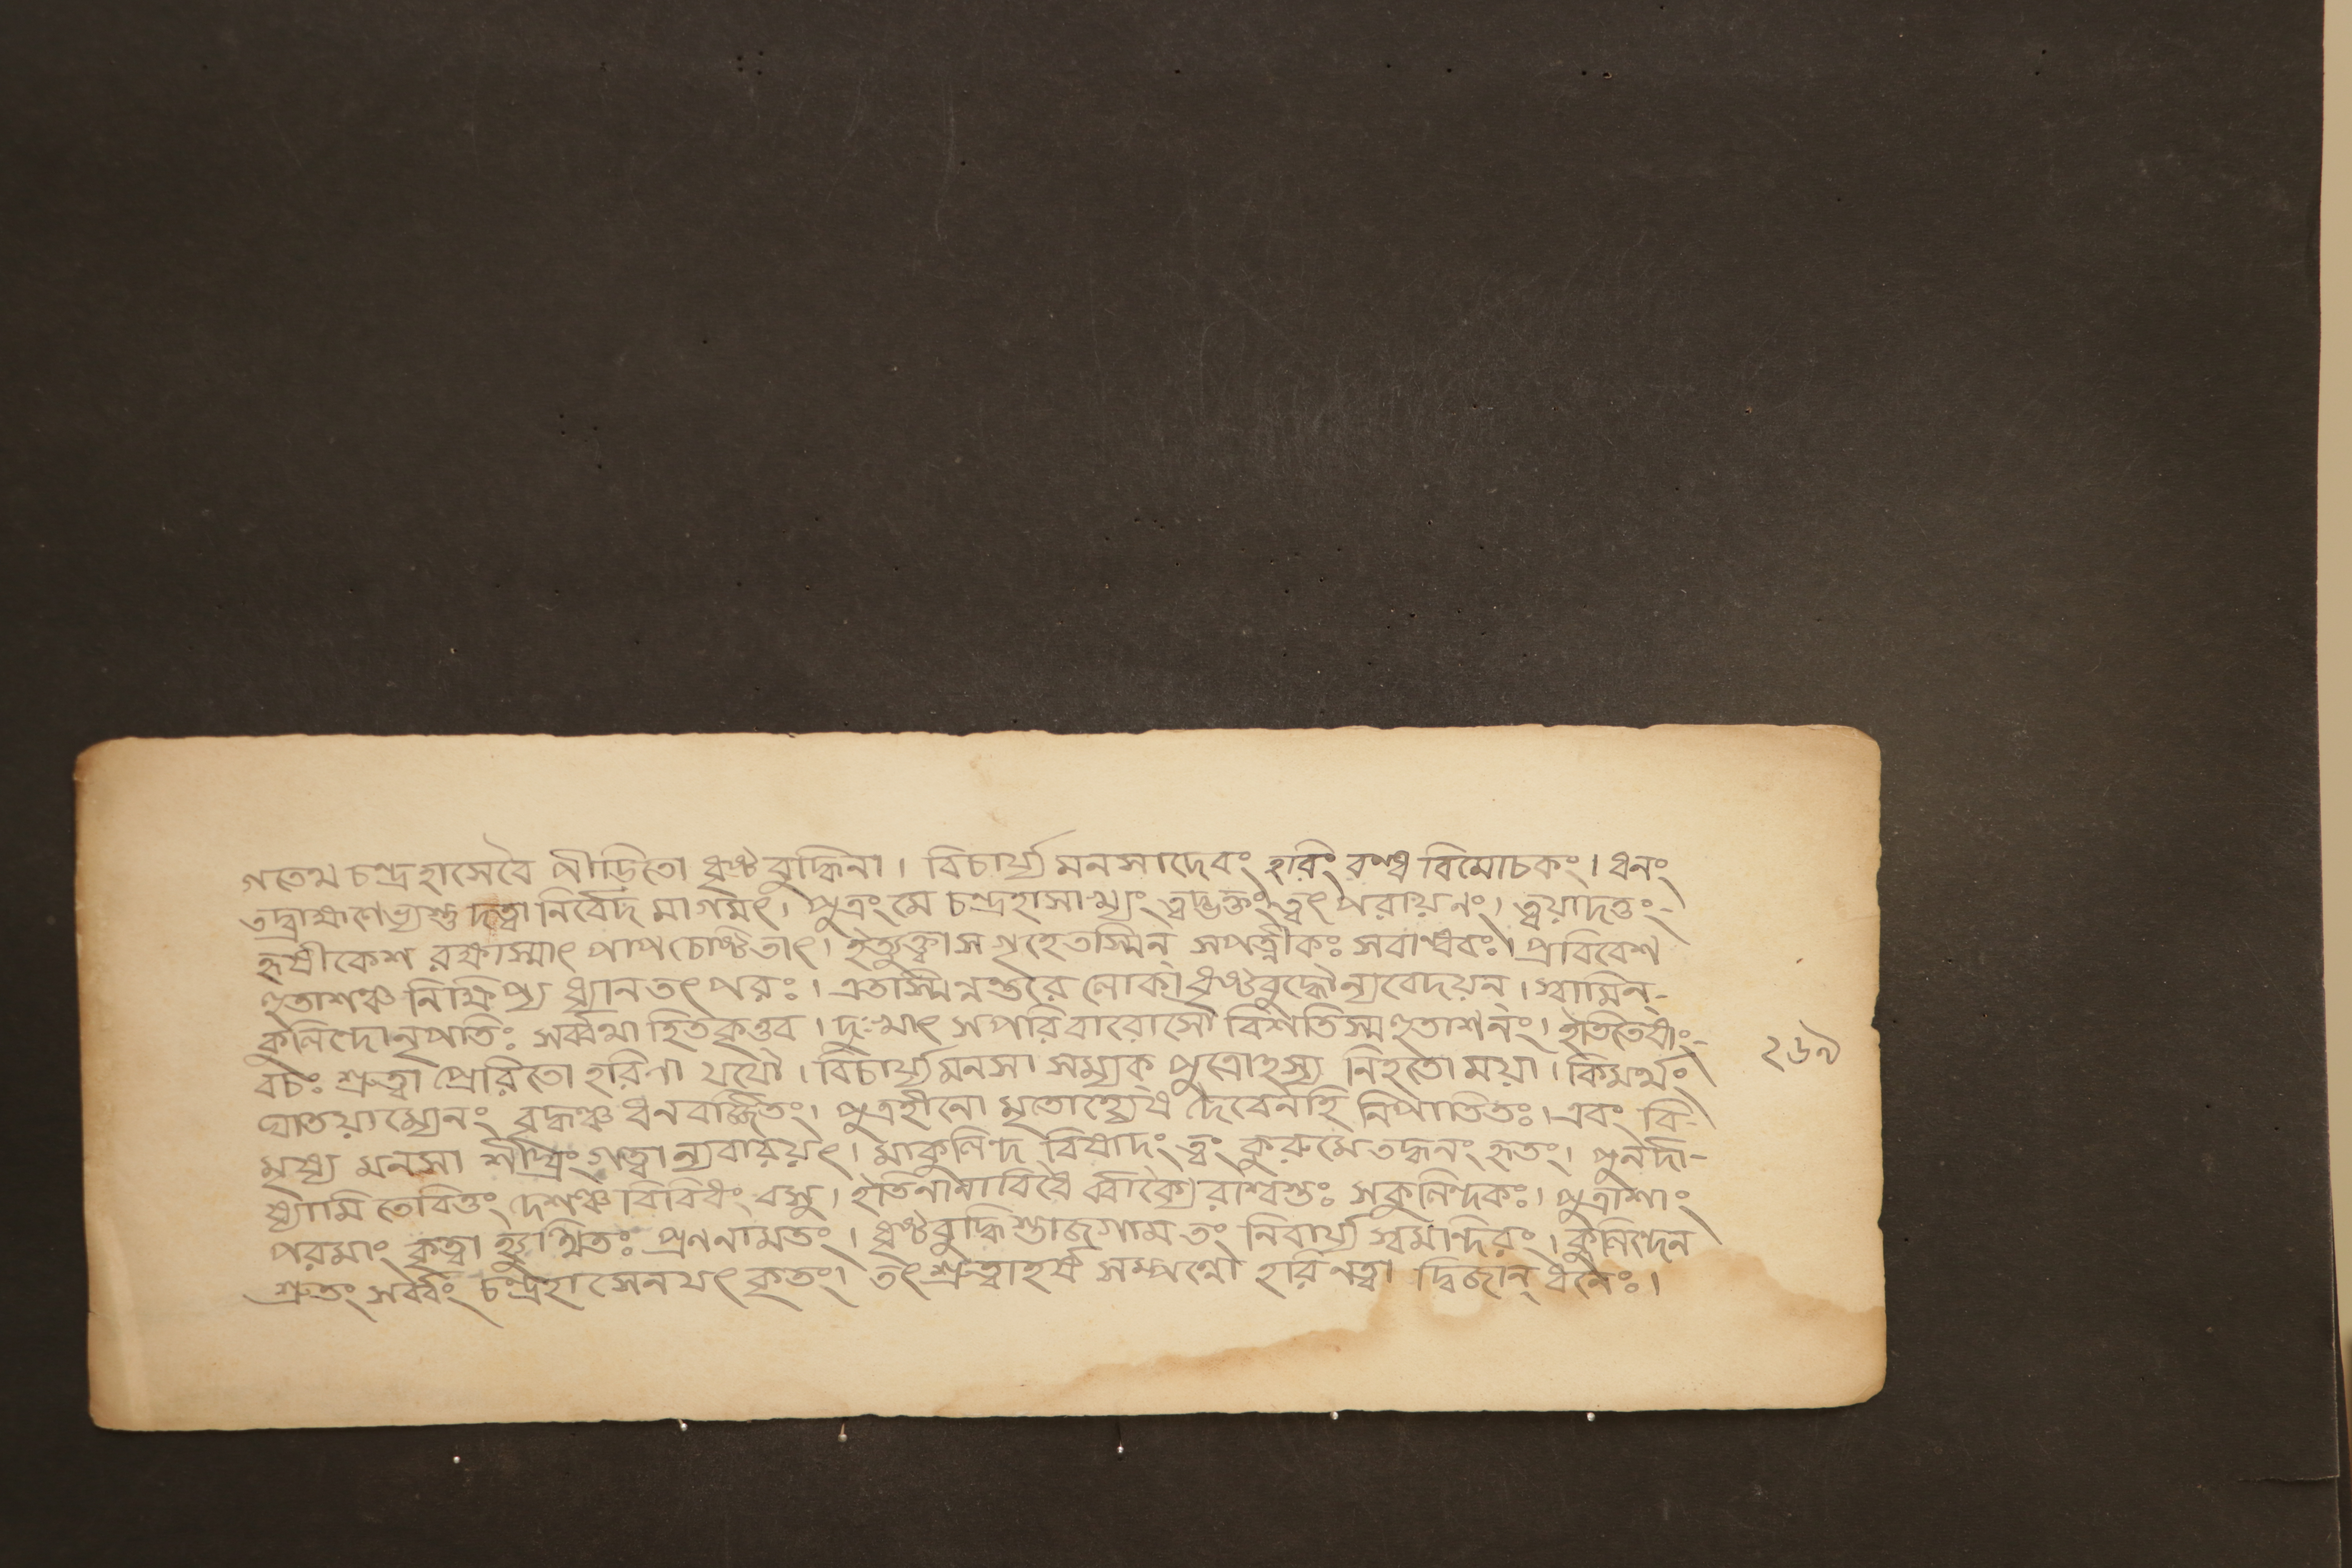 গতেথ চন্দ্রহাসেবৈ পীডিতো ধৃষ্টবুদ্ধিনা। বিচার্য্য মনসাদেবং হরিং বণ্ধ বিমোচকং। ধনং
তদ্ব্রাহ্মণেভ্যস্তু দত্বা নির্বেদ মাগমৎ। পুত্রং মে চন্দ্রহাসাখ্যং ত্বদ্ভক্তং ত্বৎ পরায়নং। ত্বয়াদত্তং-
হৃষীকেশ রক্ষাস্মাৎ পাপ চেষ্টিতাৎ। ইত্যুক্ত্বা স গৃহে তস্মিন্ সপত্নীকঃ সবাণ্ধবঃ। প্রবিবেশ
হুতাশঞ্চ নিক্ষিপ্য ধ্যান তৎ পরঃ। এতস্মিন্নন্তরে লোকা ধৃষ্টবুদ্ধৌন্যবেদয়ন্। স্বামিন্-
কুলিন্দোনৃপতিঃ সর্ব্বথা হিতকৃত্তব। দুঃখাৎ সপরিবারোসৌ বিশতিস্ম হুতাশনং। ইতিতেষাং-
বচঃ শ্রুত্বা প্রেরিতো হরিণা যযৌ। বিচার্য্যমনসা সম্যক্ পুত্রোহস্য নিহতো ময়া। কিমর্থং
ঘাতয়াম্যেনং বৃদ্ধঞ্চ ধনবর্জ্জিতং। পুত্রহীনো মৃতোহ্যেষ দৈবেনহি নিপাতিতঃ। এবং বি-
মৃষ্য মনসা শীঘ্রং গত্বা ন্যবারয়ৎ। মাকুলিন্দ বিষাদং ত্বং কুরুমে তদ্ধনং হৃতং। পুনর্দা-
ষ্যামি তেবিত্তং দেশঞ্চ বিবিধং বসু। ইতিনানাবিধৈ র্ব্বাক্যৈ রাশ্বস্তঃ সকুলিন্দকঃ। পুত্রাশাং
পরমাং কৃত্বা হ্যুত্থিতঃ প্রণনামতং। ধৃষ্টবুদ্ধি স্তাজগাম তং নিবার্য্য স্বমন্দিরং। কুলিন্দেন
শ্রুতং সর্ব্বং চন্দ্রহাসেনযৎ কৃতং। তৎ শ্রুত্বাহর্ষ সম্পণ্ণো হরিং নত্বা দ্বিজান্ ধনৈঃ।
২৬৯